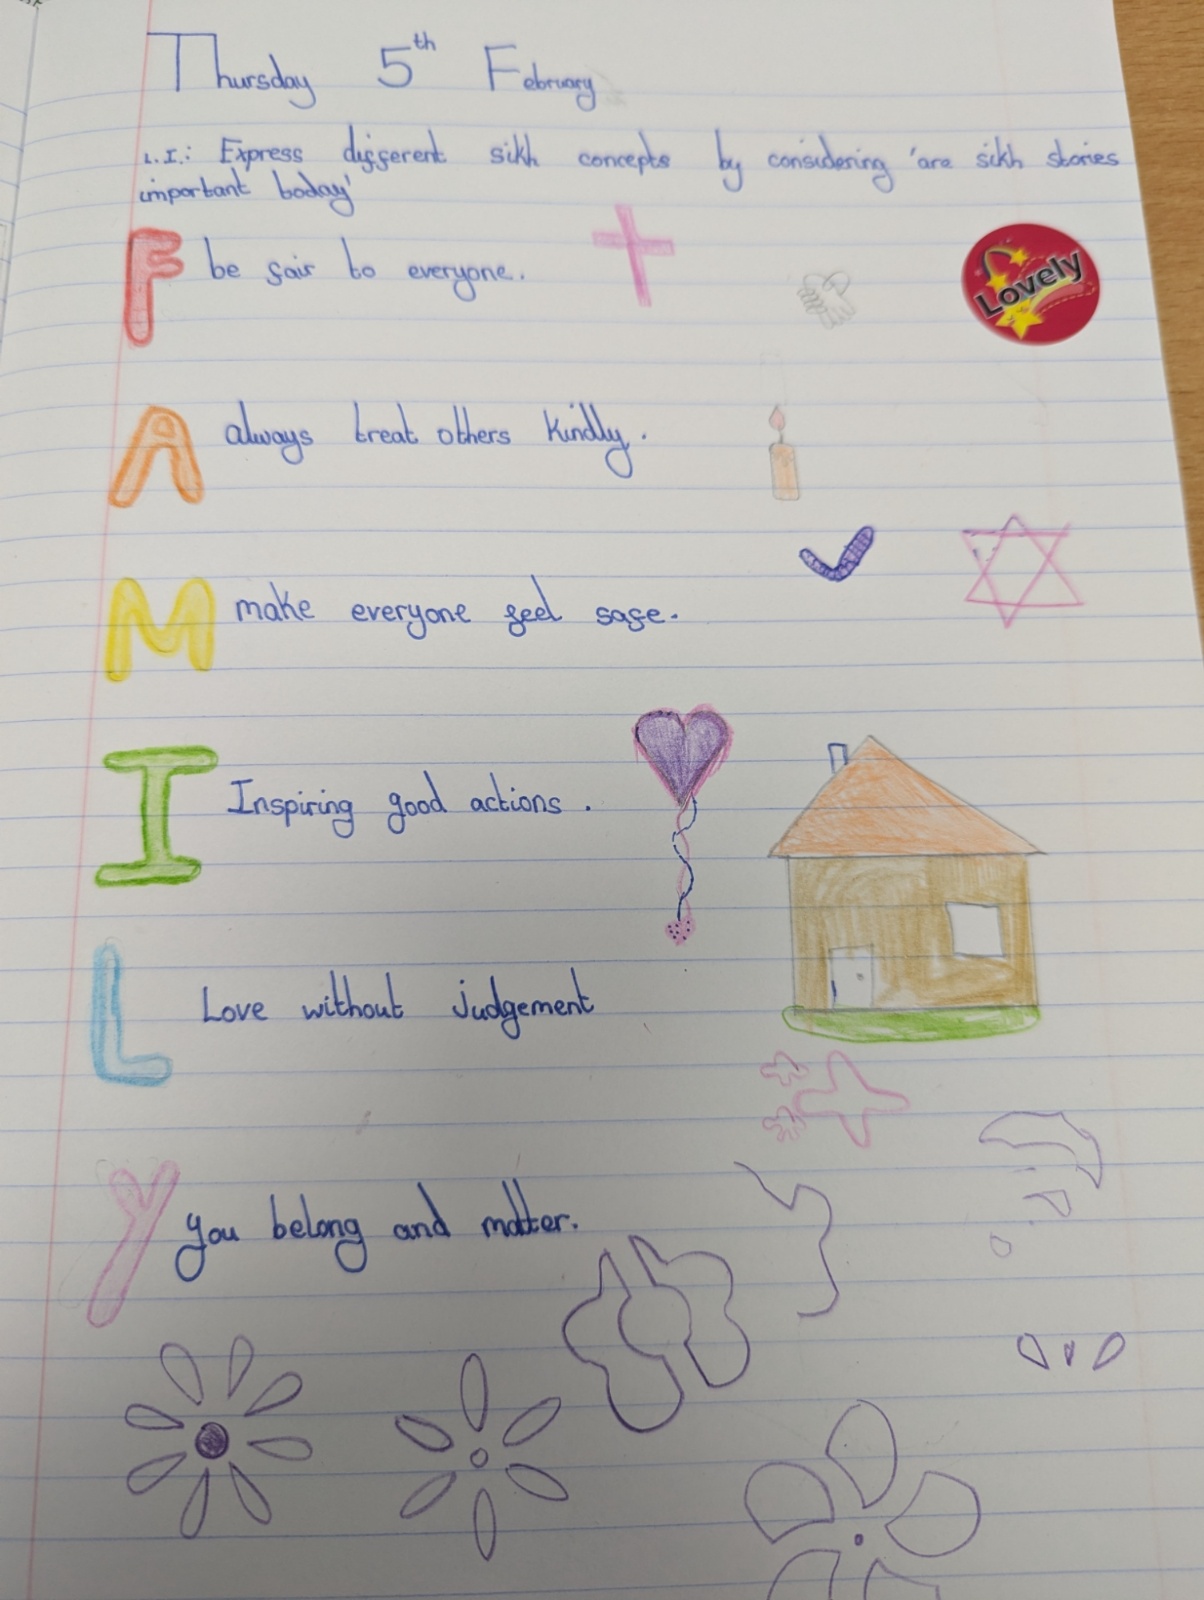 Thursday 5th February
L.I.: Express different sikh concepts by considering 'are sikh stories
important today'
F be fair to everyone.
Lovely
A always treat others kindly.
M make everyone feel safe.
I Inspiring good actions.
L Love without judgement
Y you belong and matter.